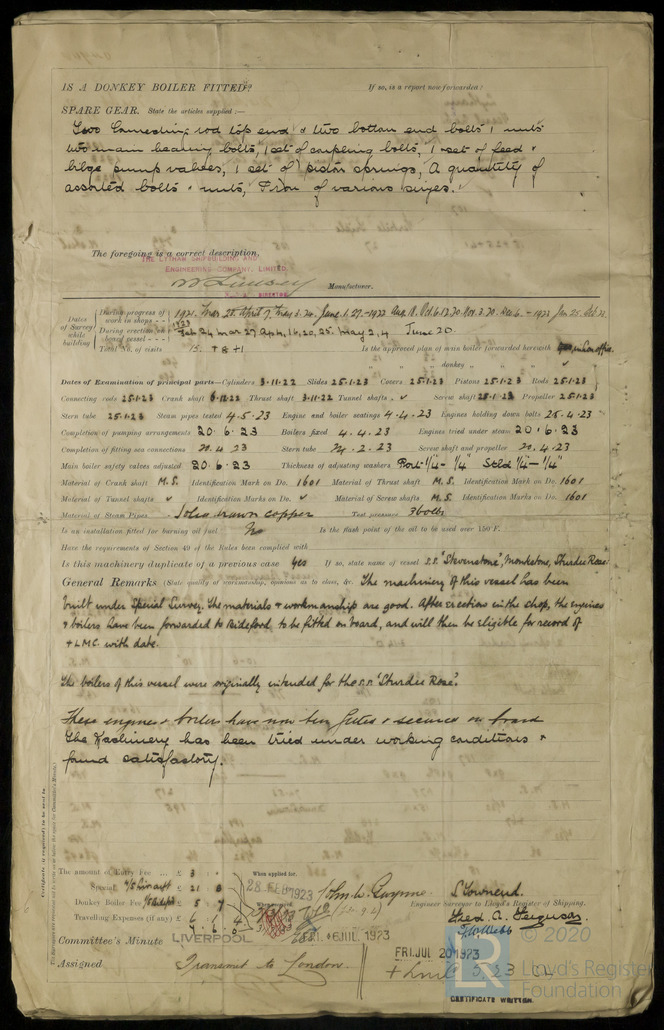 IS A DONKEY BOILER FITTED? If so, is a report now forwarded?
SPARE GEAR. State the articles supplied:—
Two Connecting rod top end & two bottom end bolts & nuts
two main bearing bolts, 1 set of coupling bolts, 1 set of feed &
bilge pump valves, 1 set of piston springs, A quantity of
assorted bolts & nuts, Iron of various sizes.
The foregoing is a correct description,
THE LYTHAM SHIPBUILDING AND
ENGINEERING COMPANY, LIMITED.
Manufacturer.
DIRECTOR
Dates of Survey while building
During progress of work in shops - - 1921. Mar 22. April 7. 1922 Jan 25. Feb
During erection on board vessel - - - 1923 Feb 24 Mar 27 Apr 4, 16, 20, 25. May 2, 4 June 20.
Total No. of visits 15. + 8 + 1 Is the approved plan of main boiler forwarded herewith
" " " donkey " " "
Dates of Examination of principal parts—Cylinders 3·11·22 Slides 25·1·23 Covers 25·1·23 Pistons 25·1·23 Rods 25·1·23
Connecting rods 25·1·23 Crank shaft 6·12·22 Thrust shaft 3·11·22 Tunnel shafts ✓ Screw shaft 25·1·23 Propeller 25·1·23
Stern tube 25·1·23 Steam pipes tested 4·5·23 Engine and boiler seatings 4·4·23 Engines holding down bolts 25·4·23
Completion of pumping arrangements 20·6·23 Boilers fixed 4·4·23 Engines tried under steam 20·6·23
Completion of fitting sea connections 4·23 Stern tube 2·23 Screw shaft and propeller 4·23
Main boiler safety valves adjusted 20·6·23 Thickness of adjusting washers Port 1/4 - 1/4" Stbd 1/4" - 1/4"
Material of Crank shaft M.S. Identification Mark on Do. 1601 Material of Thrust shaft M.S. Identification Mark on Do. 1601
Material of Tunnel shafts ✓ Identification Marks on Do. ✓ Material of Screw shafts M.S. Identification Marks on Do. 1601
Material of Steam Pipes Solid drawn copper Test pressure 360 lbs
Is an installation fitted for burning oil fuel No Is the flash point of the oil to be used over 150°F.
Have the requirements of Section 49 of the Rules been complied with
Is this machinery duplicate of a previous case Yes If so, state name of vessel S.S. "Stevenstone", Monkstone, Sturdie Rose"
General Remarks (State quality of workmanship, opinions as to class, &c. The machinery of this vessel has been
built under Special Survey. The materials & workmanship are good. After erection in the shop, the engines
& boilers have been forwarded to Bideford, to be fitted on board, and will then be eligible for record of
+ LMC. with date.
The boilers of this vessel were originally intended for the S.S. "Sturdie Rose".
These engines & boilers have now been fitted & secured on board
The Machinery has been tried under working conditions &
found satisfactory.
The amount of Entry Fee ... £ 3 When applied for,
Special £ 21 8 28 FEB 1923
Donkey Boiler Fee £ 5 7
Travelling Expenses (if any) £ 6 1 4
Engineer Surveyor to Lloyd's Register of Shipping.
Fred. A. Ferguson
Committee's Minute LIVERPOOL 1923
FRI. JUL 20 1923
Assigned Transmit to London
CERTIFICATE WRITTEN.
LR
© 2020
Lloyd's Register
Foundation